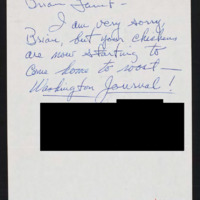 Brian Lamb -
I am very sorry,
Brian, but your chickens
are now starting to
come home to roost -
Washington Journal!